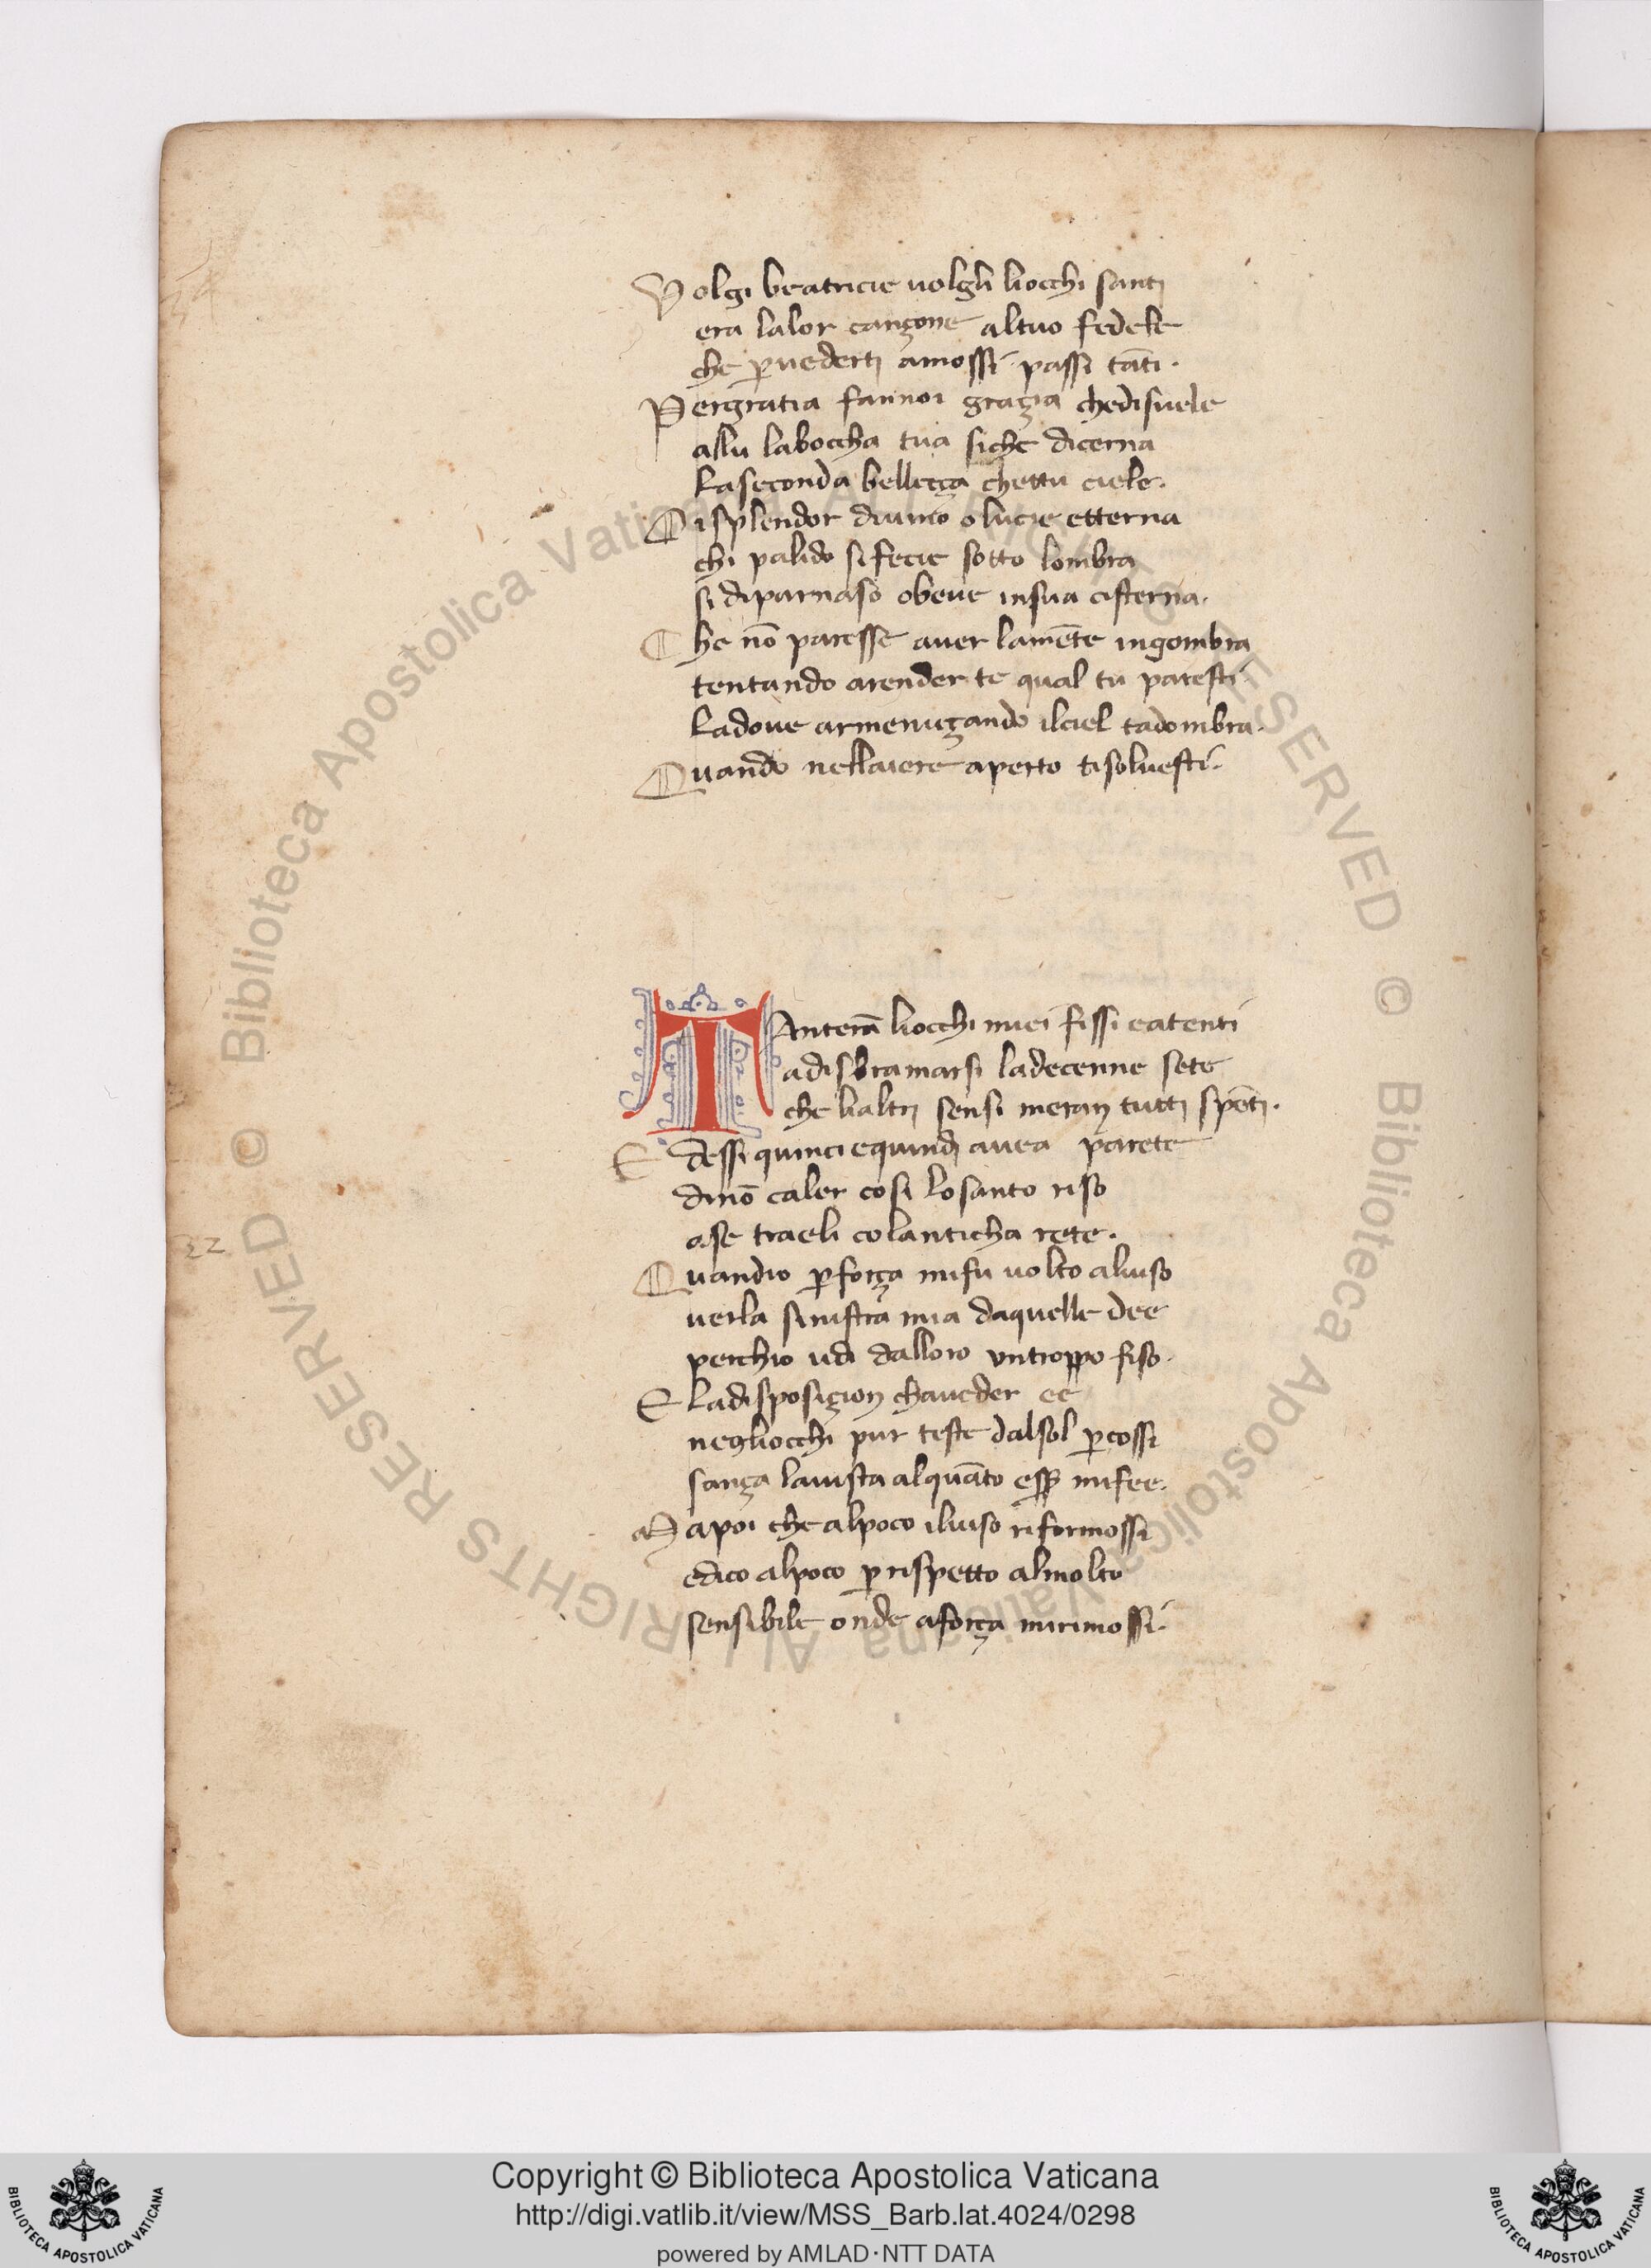 Volgi beatricie uolgli liocchi santi
era lalor cançone altuo fedele
che p̱uederti amossi passi tāti.
Pergratia fannoi graçia chedisuele
allu laboccha tua siche dicerna
Laseconda belleçça chettu ciele.
Displendor diuino o lucie etterna
chi palido si fecie sotto lombra
si diparnaso obeue insua cisterna.
Che nō paresse auer lamēte ingombra
tentando arender te qual tu paresti
Ladoue armeniçando ilciel tadombra.
Quando nellaiere aperto tisoluesti.
TAnterā liocchi miei fissi eatenti
adisbramarsi ladecenne sete
che lialtri sensi meran tutti spēti.
Edessi quinci equindi auea parete
dinō caler cosi Losanto riso
ase traeli colanticha rete.
Quandio p̱força mifu uolto aluiso
uerla sinistra mia daquelle dee
perchio udi dalloro untroppo fiso.
E ladisposiçion chaueder ee
negliocchi pur teste dalsol p̱cossi
sança lauista alquāto mifee.
Mapoi che alpoco iluiso riformossi
edico alpoco p̱ rispetto almolto
sensibile onde aforça mirimossi.
32
Biblioteca Apostolica Vaticana ALL RIGHTS RESERVED ©
Copyright © Biblioteca Apostolica Vaticana
http://digi.vatlib.it/view/MSS_Barb.lat.4024/0298
powered by AMLAD·NTT DATA
BIBLIOTECA APOSTOLICA VATICANA
BIBLIOTECA APOSTOLICA VATICANA